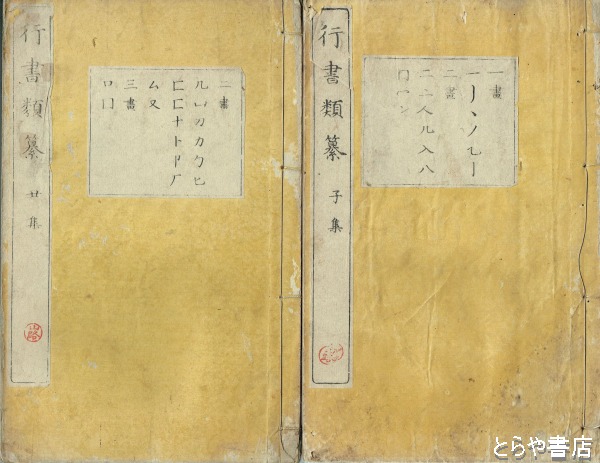 行書類纂 子集
一畫
一丨丶丿乙亅
二畫
二亠人儿入八
冂冖冫
行書類纂 丑集
二畫
几凵刀力勹匕
匚匸十卜卩厂
厶又
三畫
口囗
とらや書店